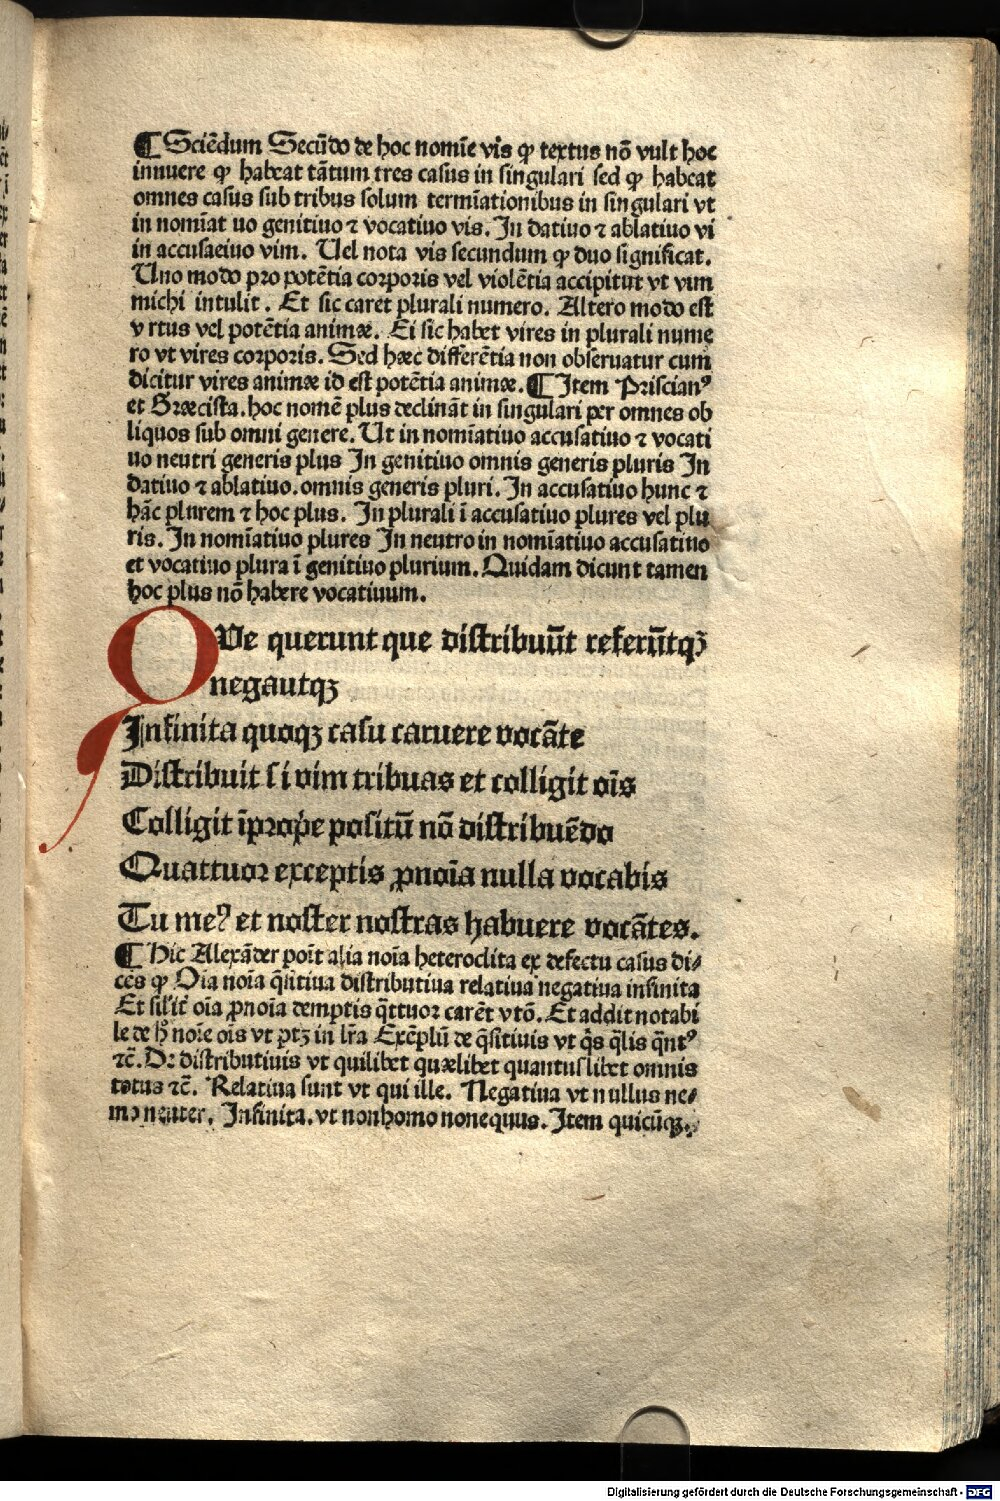 ¶ Sciēdum Secūdo de hoc nomīe vis ꝙ textus nō vult hoc
innuere ꝙ habeat tātum tres casus in singulari sed ꝙ habeat
omnes casus sub tribus solum termīationibus in singulari vt
in nomīat uo genitiuo ⁊ vocatiuo vis. In datiuo ⁊ ablatiuo vi
in accusaeiuo vim. Uel nota vis secundum ꝙ duo significat.
Uno modo pro potētia corporis vel violētia accipitut vt vim
michi intulit. Et sic caret plurali numero. Altero modo est
v rtus vel potētia animæ. Ei sic habet vires in plurali nume
ro vt vires corporis. Sed hæc differētia non obseruatur cum
dicitur vires animæ id est potētia animæ. ¶ Item Priscianꝰ
et Græcista. hoc nomē plus declināt in singulari per omnes ob
liquos sub omni genere. Ut in nomīatiuo accusatiuo ⁊ vocati
uo neutri generis plus In genitiuo omnis generis pluris In
datiuo ⁊ ablatiuo. omnis generis pluri. In accusatiuo hunc ⁊
hāc plurem ⁊ hoc plus. In plurali ī accusatiuo plures vel plu
ris. In nomīatiuo plures In neutro in nomīatiuo accusatiuo
et vocatiuo plura ī genitiuo plurium. Quidam dicunt tamen
hoc plus nō habere vocatiuum.
QUe querunt que distribuūt referūtqꝫ
negautqꝫ
Infinita quoqꝫ casu caruere vocāte
Distribuit s i vim tribuas et colligit oīs
Colligit īprop̄e positū nō distribuēdo
Quattuor exceptis ꝓnoīa nulla vocabis
Tu meꝰ et noster nostras habuere vocātes.
¶ Hic Alexāder poīt alia noīa heteroclita ex defectu casus di⸗
cēs ꝙ Oīa noīa q̄sitiua distributiua relatiua negatiua infinita
Et silit̄ oīa ꝓnoīa demptis q̄ttuor carēt vtō. Et addit notabi
le de h̄ noīe oīs vt ptꝫ in lr̄a Exēplū de q̄sitiuis vt q̄s q̄lis q̄ntꝰ
⁊c̄. De distributiuis vt quilibet quælibet quantuslibet omnis
totus ⁊c̄. Relatiua sunt vt qui ille. Negatiua vt nullus ne⸗
mo neuter. Infinita. vt nonhomo nonequus. Item quicūqꝫ.
Digitalisierung gefördert durch die Deutsche Forschungsgemeinschaft - DFG